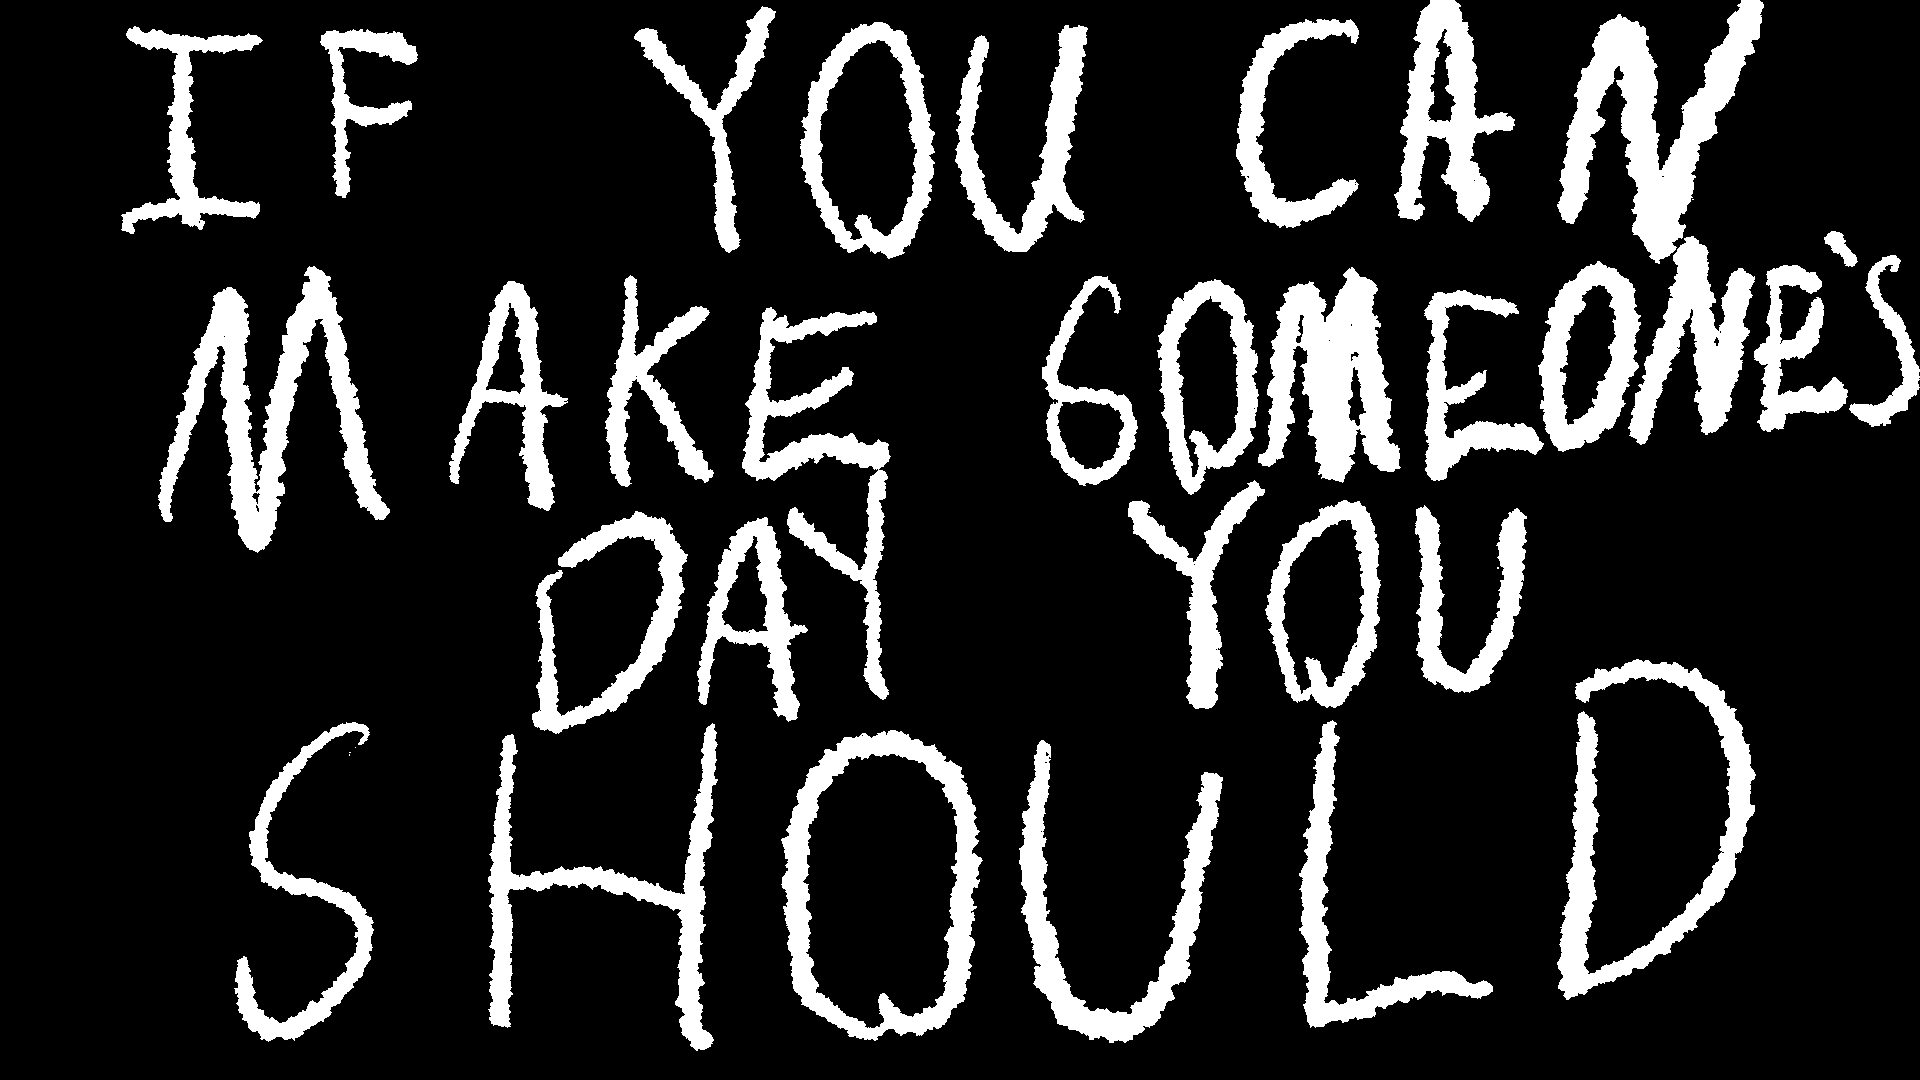 IF YOU CAN
MAKE SOMEONE'S
DAY YOU
SHOULD